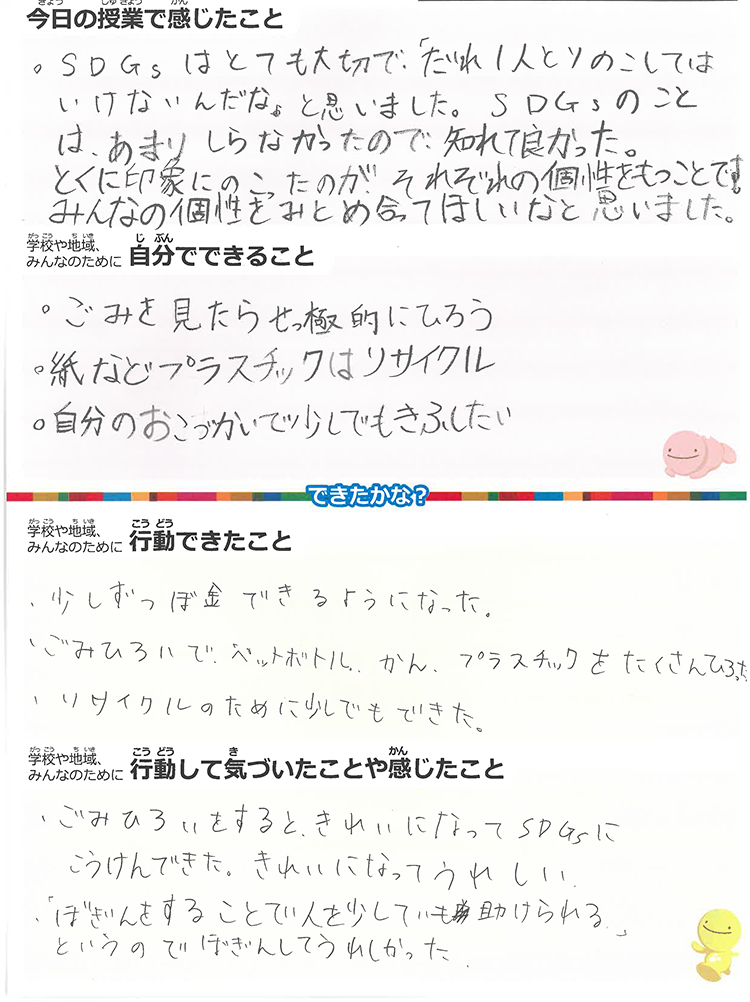 今日の授業で感じたこと
。SDGsはとても大切で、「だれ1人とりのこしては
いけないんだな。」と思いました。SDGsのこと
は、あまりしらなかったので、知れて良かった。
とくに印象にのこったのが、それぞれの個性をもつことです。
みんなの個性をみとめ合ってほしいなと思いました。
学校や地域、
みんなのために 自分でできること
。ごみを見たらせっ極的にひろう
。紙などプラスチックはリサイクル
。自分のおこづかいで少しでもきふしたい
できたかな?
学校や地域、
みんなのために 行動できたこと
・少しずつぼ金できるようになった。
・ごみひろいで、ペットボトル、かん、プラスチックをたくさんひろった
・リサイクルのために少しでもできた。
学校や地域、
みんなのために 行動して気づいたことや感じたこと
・ごみひろいをすると、きれいになってSDGsに
こうけんできた。きれいになってうれしい。
・「ぼきんをすることで人を少しでも助けられる。」
というのでぼきんしてうれしかった